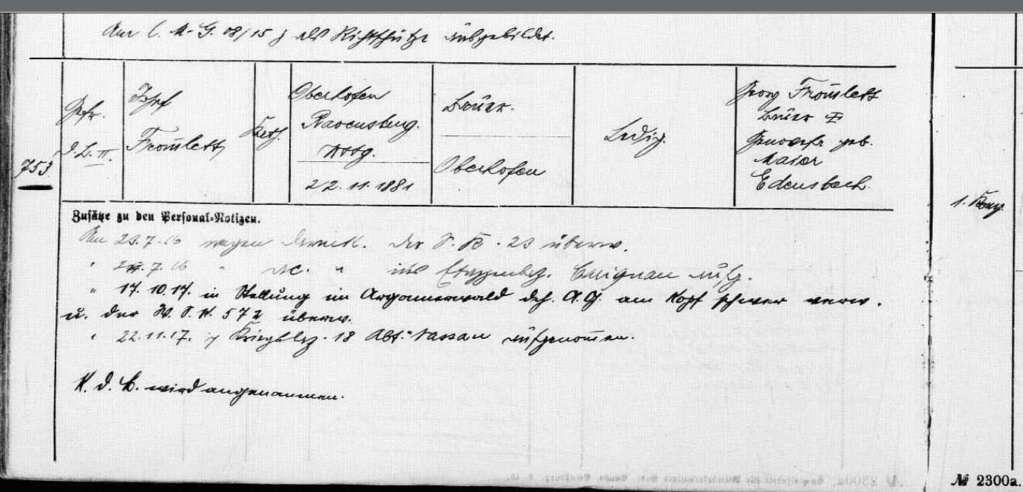 Am l. M.G. 08/15 z als Richtschütze ausgebildet.
753
Gefr.
d. L. II
Josef
Fromlett,
Kath.
Oberhofen
Ravensburg.
Wttbg.
22.11.1881
Bauer.
Oberhofen
Ledig.
Georg Fromlett
Bauer
Genovefa geb.
Maier
Edensbach.
1. Komp.
Zusätze zu den Personal-Notizen.
Am 23.7.16 wegen der überw.
" .7.16 " " ins Etappenlaz. Carignan aufg.
" 17.10.17. in Stellung im Argonnerwald dch. A.G. am Kopf schwer verw.
u. der überw.
" 22.11.17. Kriegslaz. 18 Abt. Nassau aufgenommen.
K. d. B. wird angenommen.
№ 2300a.